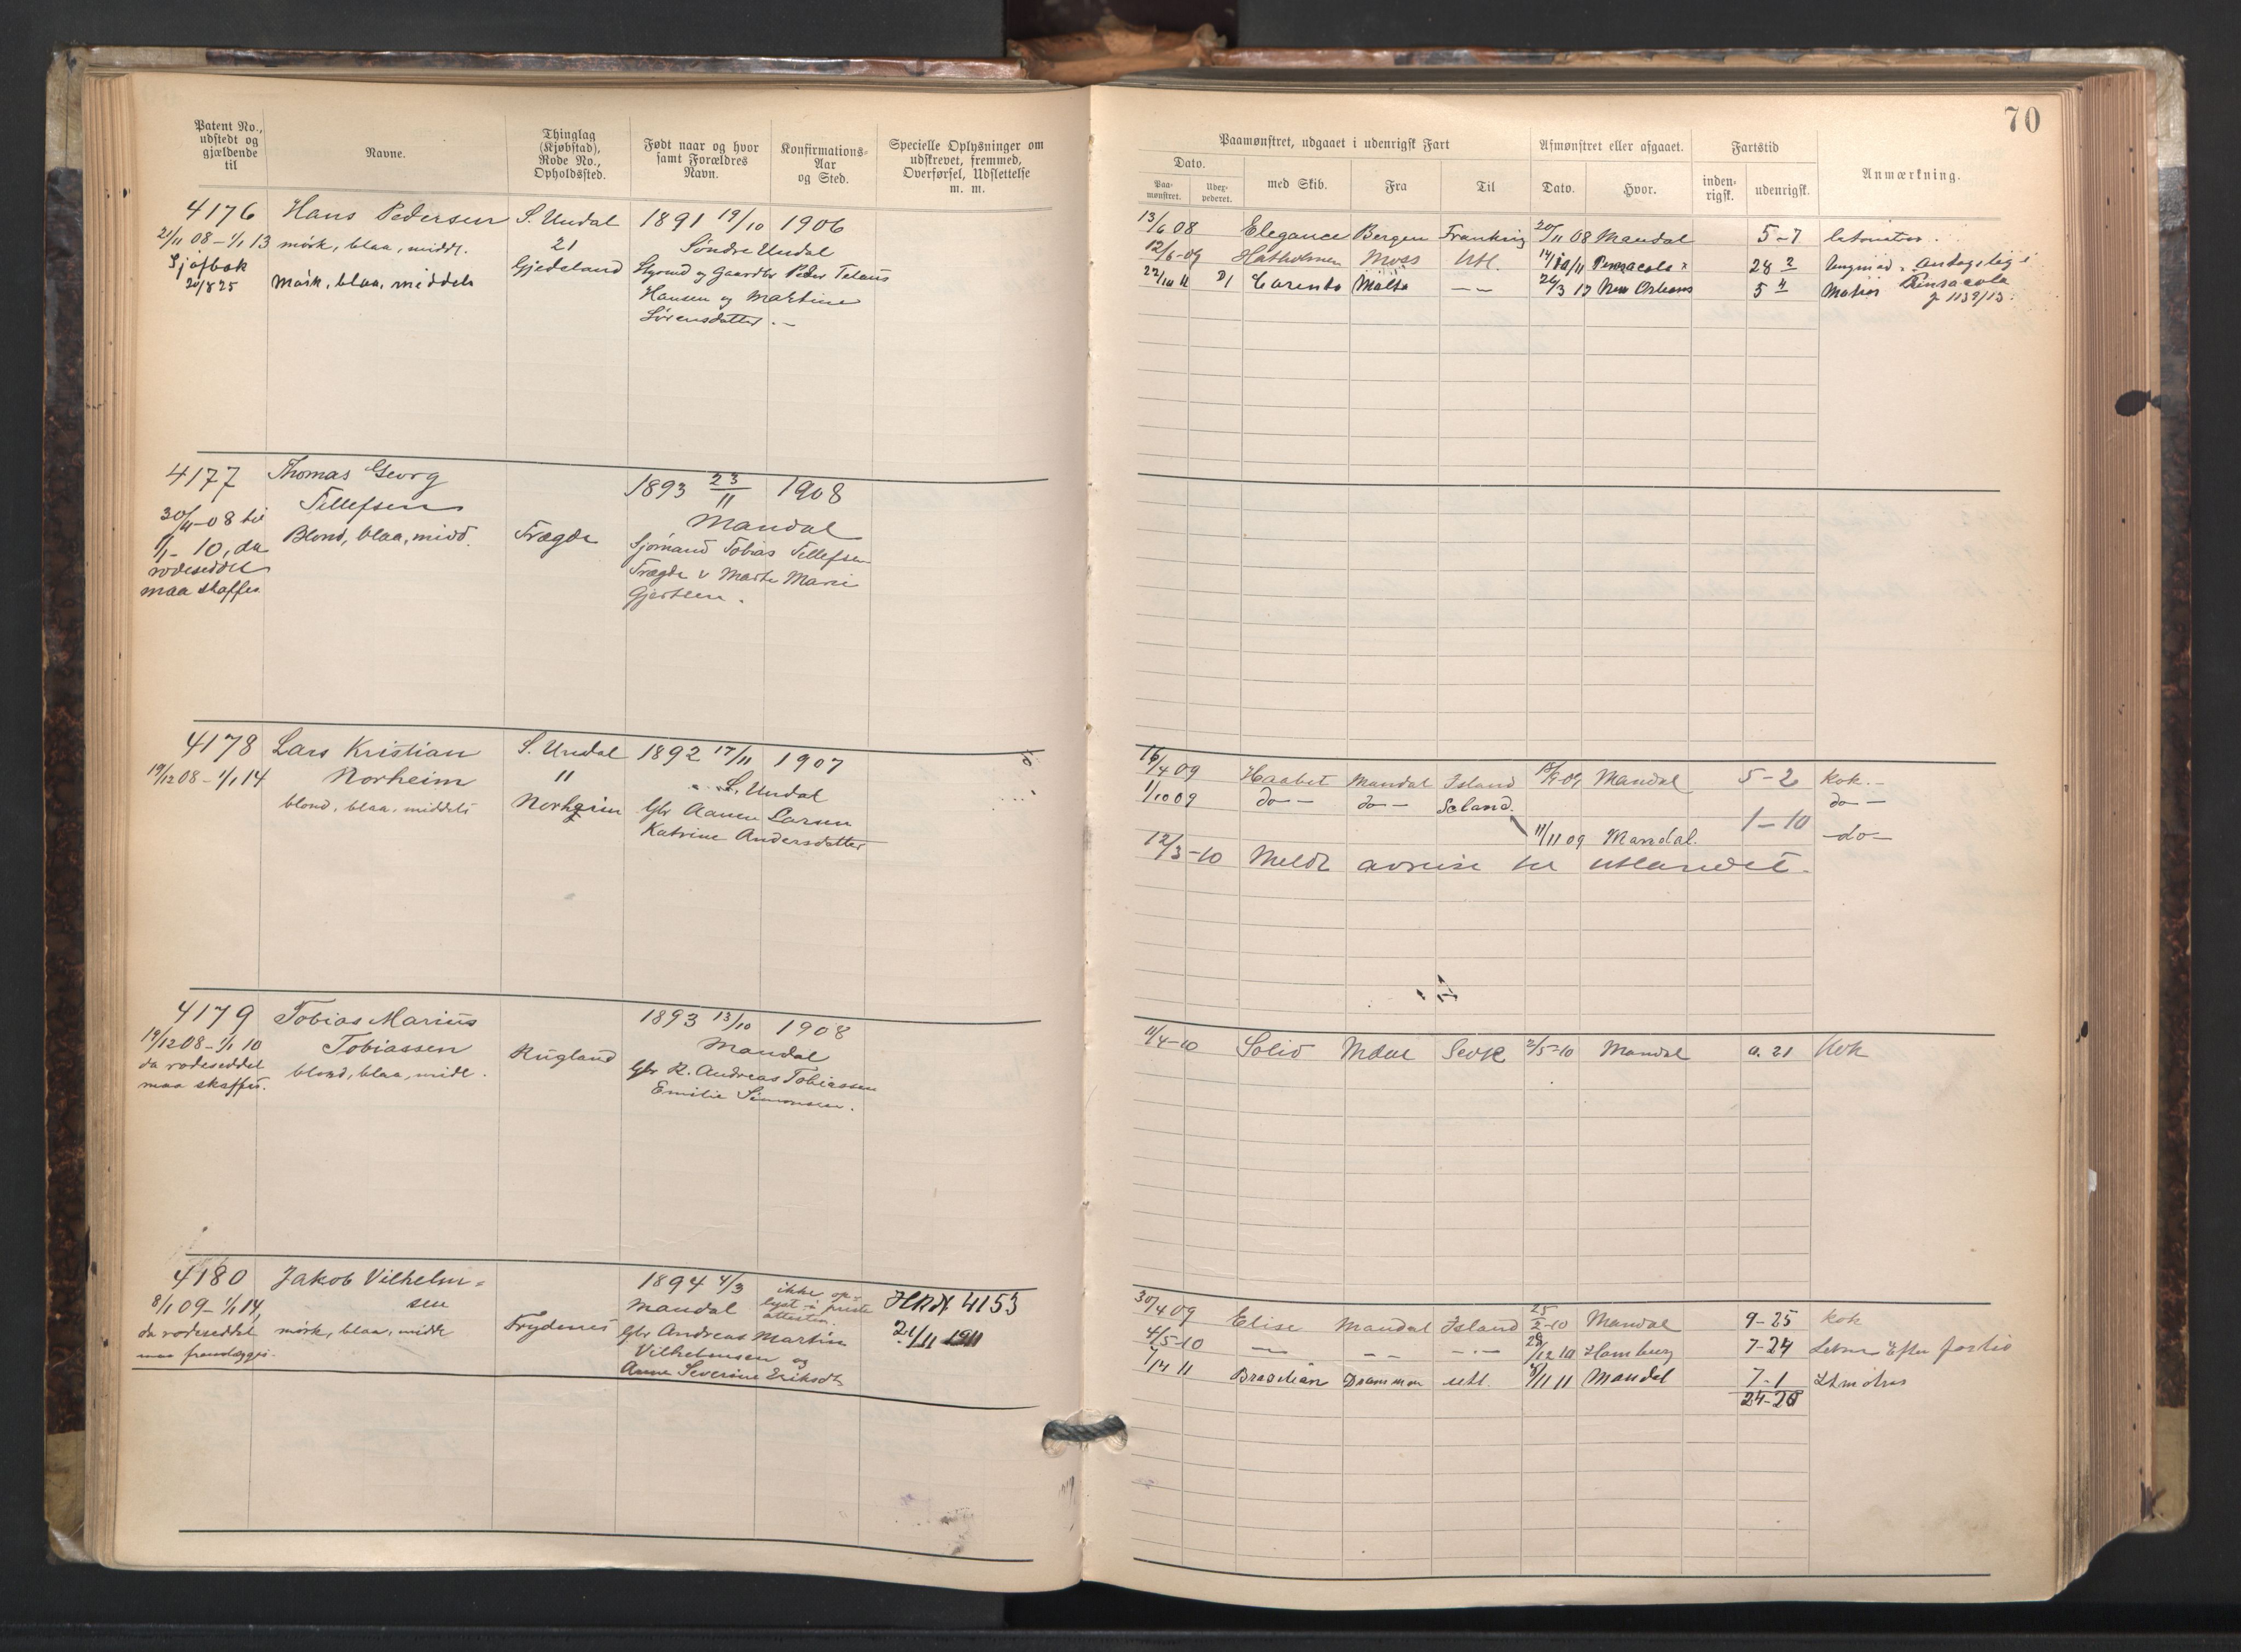 70
Patent No., udstedt og gjældende til
Navne.
Thinglag (Kjøbstad), Rode No., Opholdssted.
Født naar og hvor samt Forældres Navn.
Konfirmations-Aar og Sted.
Specielle Oplysninger om udskrevet, fremmed, Overførsel, Udslettelse m. m.
Paamønstret, udgaaet i udenrigsk Fart
Dato.
Paa-mønstret.
med Skib.
Fra
Til
Afmønstret eller afgaaet.
Dato.
Hvor.
Fartstid
inden-rigsk.
udenrigsk.
Anmærkning.
4176 Hans Pedersen S. Undal 1891 19/10 1906
21/11 08 – 1/1 13 mørk, blaa, middl. 21 Søndre Undal
Sjøfbok Gjedsland
20/8 25 Mørk, blaa, middels
Hansen og Martine
Sørensdatter. –
13/6 08 Elegance Bergen 20/11 08 Mandal 5-7
12/6-09 Hatholmen Moss Utl. Pensacola 28
Malta – – 26/3 New Orleans 5 Matros Pensacola
j 1139/13.
4177 Thomas Georg 1893 23/11 1908
Tellefsen Mandal
30/11-08 til Blond, blaa, midd. Trægde Sjømand Tobias Tellefsen
1/1-10, da Trægde
rodeseddel Gjertsen.
maa skaffes
4178 Lars Kristian S. Undal 1892 17/11 1907
19/12 08 – 1/1 14 Norheim 11 S. Undal
blond, blaa, middels Norheim Gbr Aanen Larsen
Katrine Andersdatter
16/4 09 Haabet Mandal Island Mandal 5-2 Kok. –
1/10 09 do – do – do –
11/11 09 Mandal. 1-10 – do –
12/3-10 Meldt avreise til utlandet.
4179 Tobias Marius 1893 13/10 1908
19/12 08 – 1/1 10 Tobiassen Rugland Mandal
da rodeseddel blond, blaa, midl. Gbr R. Andreas Tobiassen
maa skaffes. Emilie Simonsen.
11/4-10 Solid 2/5-10 Mandal 0. 21 Kok
4180 Jakob Vilhelm= 1894 4/3 ikke op=
sen
8/1 09 – 1/1 14, Mandal lyst i preste
attesten.
da rodeseddel mørk, blaa, middl Frydenes Gbr Andreas Martin
maa fremlægges. Vilhelmsen og
Anne Severine Eriksdt
4153
21/11 1911
30/4 09 Elise Mandal Island 25/2-10 Mandal 9-25 kok
4/5-10 — – – – . – Hamburg 7-24
Brasilian Drammen utl. Mandal 7-1
24-20